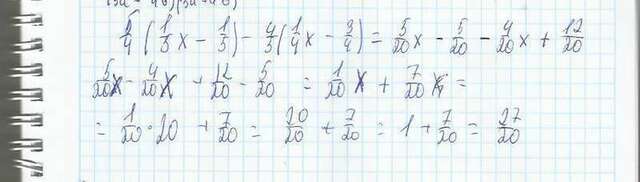 5/4 (1/5 x - 1/5) - 4/5 (1/4 x - 3/4) = 5/20 x - 5/20 - 4/20 x + 12/20
5/20 x - 4/20 x + 12/20 - 5/20 = 1/20 x + 7/20 =
= 1/20 · 20 + 7/20 = 20/20 + 7/20 = 1 + 7/20 = 27/20